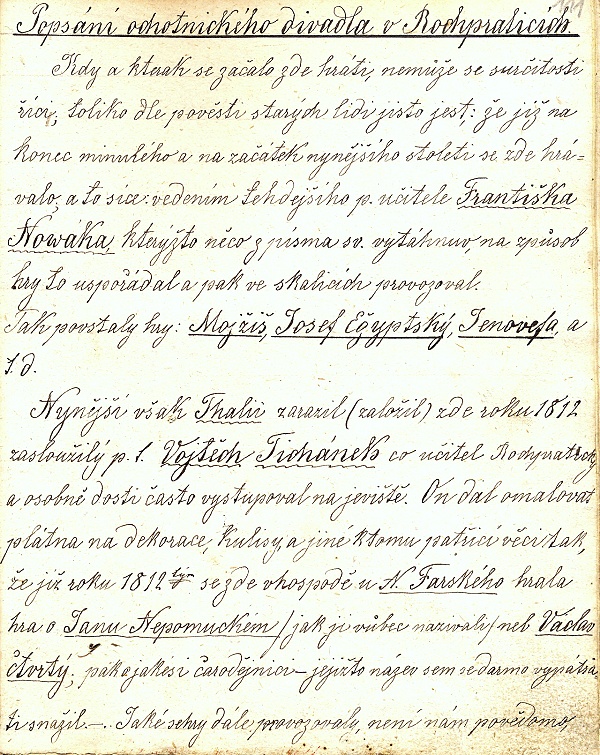 Popsání ochotnického divadla v Rochpraticích.
Kdy a kterak se začalo zde hráti, nemůže se s určitostí
říci; toliko dle pověsti starých lidí jisto jest; že již na
konec minulého a na začátek nynějšího století se zde hrá-
valo, a to sice: vedením tehdejšího p. učitele Františka
Nowáka, kterýžto něco z písma sv. vytáhnuv, na způsob
hry to uspořádal a pak ve skalicích provozoval.
Tak povstaly hry: Mojžíš, Josef Egyptský, Jenovefa, a
t.d.
Nynější však Thalii zarazil (založil) zde roku 1812
zasloužilý p. t. Vojtěch Tichánek co učitel
a osobně dosti často vystupoval na jeviště. On dal omalovat
plátna na dekorace, kulisy, a jiné k tomu patřící věci tak,
že již roku 1812 se zde v hospodě u N. Farského hrala
hra o Janu Nepomuckém / jak ji vůbec nazivali / neb Václav
čtvrtý; pak o jakési čarodějnici – jejížto název sem se darmo vypátra
ti snažil. –. Jaké se hry dále provozovaly, není nám povědomo,